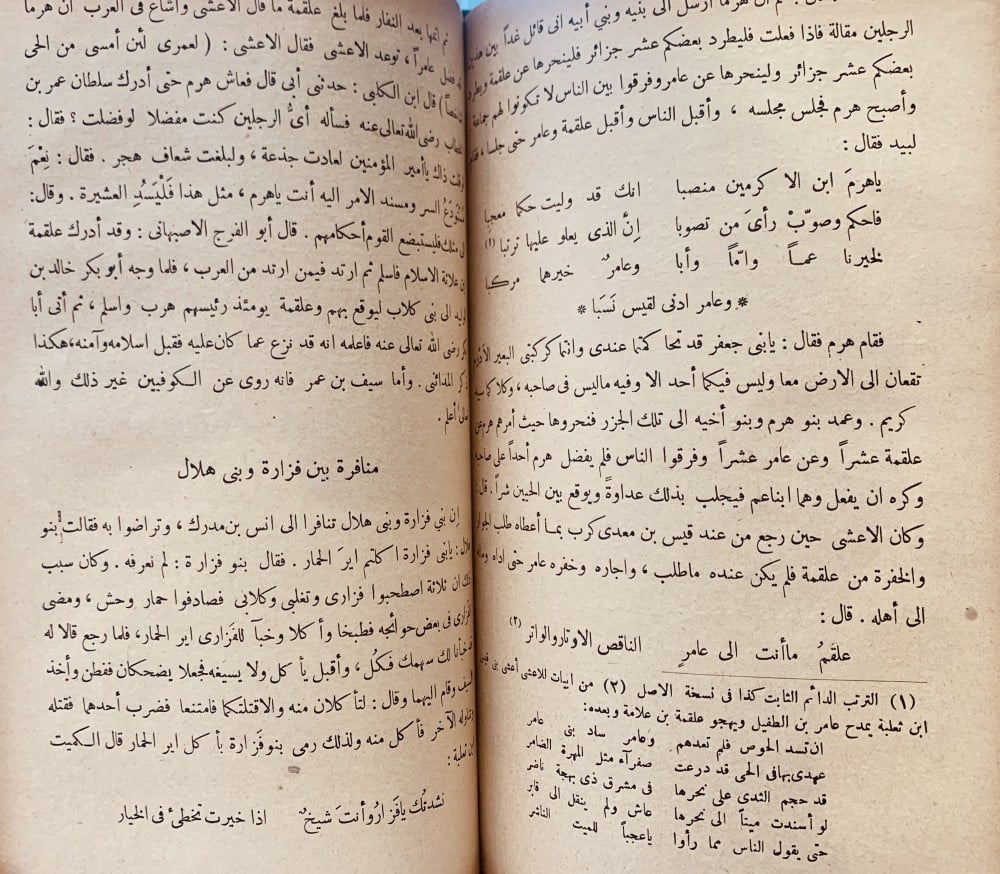 ان هرما ارسل الى بنيه وبني أبيه انى قائل غداً بين هذين
الرجلين مقالة فاذا فعلت فليطرد بعضكم عشر جزائر فلينحرها عن علقمة ويطرد
بعضكم عشر جزائر ولينحرها عن عامر وفرقوا بين الناس لا تكونوا لهم جماعة
وأصبح هرم فجلس مجلسه ، وأقبل الناس وأقبل علقمة وعامر حتى جلسا ، فقام
لبيد فقال :
ياهرمَ ابن الا كرمين منصبا انك قد وليت حكما معجبا
فاحكم وصوّبْ رأىَ من تصوبا إنَّ الذى يعلو عليها ترتبا (١)
لخيرنا عمـاً وامّاً وأبا وعامرٌ خيرهما مركبا
* وعامر ادنى لقيس نَسَبا *
فقام هرم فقال : يابنى جعفر قد تحا كمتما عندى وانتما كركبتى البعير الأدرم
تقعان الى الارض معا وليس فيكما أحد الا وفيه ماليس فى صاحبه ، وكلا كما
كريم . وعمد بنو هرم وبنو أخيه الى تلك الجزر فنحروها حيث أمرهم هرم عن
علقمة عشراً وعن عامر عشراً وفرقوا الناس فلم يفضل هرم أحداً على صاحبه
وكره ان يفعل وهما ابناعم فيجلب بذلك عداوةً ويوقع بين الحيين شراً . قال :
وكان الاعشى حين رجع من عند قيس بن معدى كرب بمـا أعطاه طلب الجوار
والخفرة من علقمة فلم يكن عنده ماطلب ، واجاره وخفره عامر حتى اداه وماله
الى أهله . قال :
علقمُ ماأنت الى عامرٍ الناقص الاوتاروالواتر (٢)
(١) الترتب الدائم الثابت كذا فى نسخة الاصل (٢) من ابيات للاعشى أعشى بنى قيس
ابن ثعلبة يمدح عامر بن الطفيل ويهجو علقمة بن علامة وبعده:
ان تسد الحوص فلم تعدهم وعامر ساد بنى عامر
عهدى بهافى الحى قد درعت صفرآء مثل المهرة الضامر
قد حجم الثدى على نحرها فى مشرق ذى بهجة ناضر
لو أسندت ميتاً الى نحرها عاش ولم ينقل الى قابر
حتى يقول الناس مما رأوا ياعجباً للميت الناشر
ثم اتمها بعد النفار فلما بلغ علقمة ما قال الاعشى واشاع فى العرب ان هرما
فضل عامراً ، توعد الاعشى فقال الاعشى : ( لعمرى لئن أمسى من الحى
شاخصاً ) قال ابن الكلبى : حدثنى أبى قال فعاش هرم حتى أدرك سلطان عمر بن
الخطاب رضى الله تعالى عنه فسأله أىُّ الرجلين كنت مفضلا لوفضلت ؟ فقال :
لوقلت ذاك ياأمير المؤمنين لعادت جذعة ، ولبلغت شعاف هجر . فقال : نِعْمَ
مُسْتَوْدَعُ السر ومسند الامر اليه أنت ياهرم ، مثل هذا فَلْيَسُدِ العشيرة . وقال:
الى مثلك فليستبضع القوم أحكامهم . قال أبو الفرج الاصبهانى : وقد أدرك علقمة
بن علاثة الاسلام فاسلم ثم ارتد فيمن ارتد من العرب ، فلما وجه أبو بكر خالد بن
الوليد الى بنى كلاب ليوقع بهم وعلقمة يومئذ رئيسهم هرب واسلم ، ثم أتى أبا
بكر رضى الله تعالى عنه فاعلمه انه قد نزع عما كان عليه فقبل اسلامه وآمنه، هكذا
ذكر المدائنى . وأما سيف بن عمر فانه روى عن الكوفيين غير ذلك والله
تعالى أعلم .
منافرة بين فزارة وبنى هلال
إن بني فزارة وبنى هلال تنافرا الى انس بن مدرك ، وتراضوا به فقالت بنو
هلال : يابنى فزارة اكلتم ايرَ الحمار . فقال بنو فزارة : لم نعرفه . وكان سبب
ذلك ان ثلاثة اصطحبوا فزارى وتغلبى وكلابى فصادفوا حمار وحش ، ومضى
الفزارى فى بعض حوائجه فطبخا وأ كلا وخبآ للفَزارى اير الحمار، فلما رجع قالا له
قد خبأنا لك سهمك فكُل ، وأقبل يأ كل ولا يسيغه فجعلا يضحكان ففطن وأخذ
السيف وقام اليهما وقال : لتأ كلان منه والاقتلتكما فامتنعا فضرب أحدهما فقتله
وتناوله الآخر فأ كل منه ولذلك رمى بنوفَزارة بأ كل اير الحمار قال الكميت
بن ثعلبة :
نشدتك يافَزاروأنتَ شيخٌ اذا خيرت تخطئُ فى الخيار